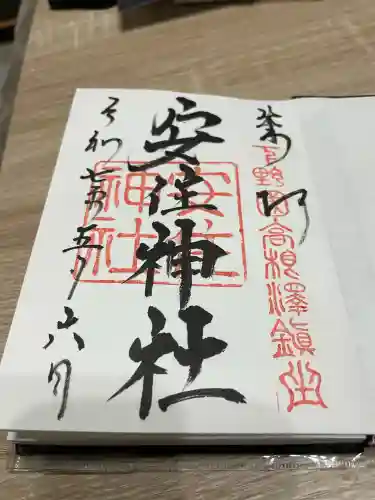 奉拝
下野國高根澤鎮坐
安住神社
安住
神社
令和七年五月六日